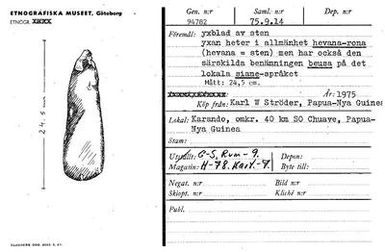 ETNOGRAFISKA MUSEET, Göteborg
ETNOGR. XXXX
24,5 cm
Gen. nr
94782
Saml. nr
75.9.14
Dep. nr
Föremål: yxblad av sten
yxan heter i allmänhet hevana-rona
(hevana = sten) men har också den
särskilda benämningen beuza på det
lokala siane-språket
Mått: 24,5 cm.
År: 1975
Köp från: Karl W Ströder, Papua-Nya Guinea
Lokal: Karando, omkr. 40 km SO Chuave, Papua-
Nya Guinea
Stam:
Utställt: G-S. Rum-9.
Depon:
Magasin: H-78. Kart.-7.
Byte till:
Negat. nr
Bild nr
Skiopt. nr
Kliché nr
Publ.